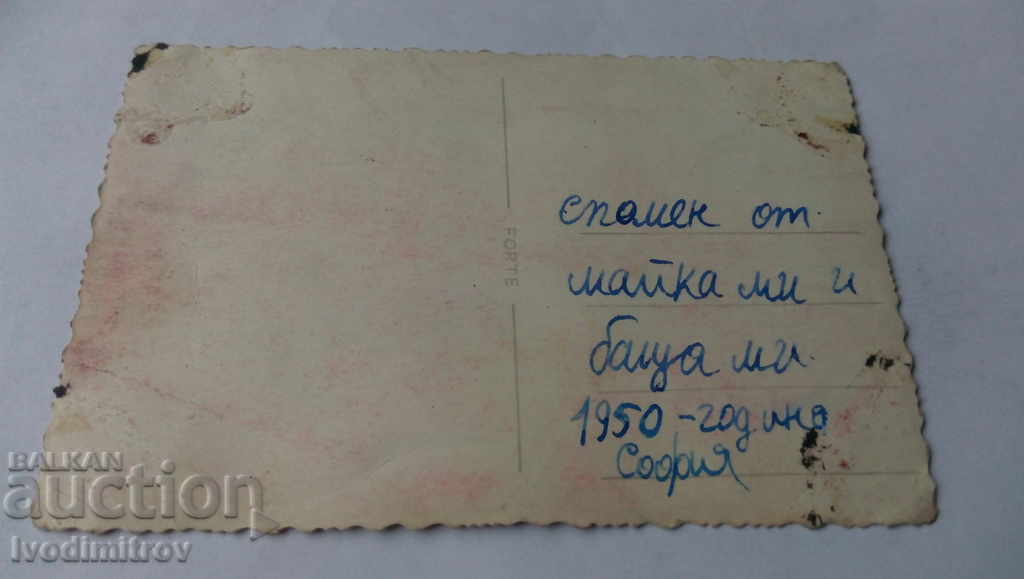 спомен от
майка ми и
баща ми.
1950 - година
София
FORTE
BALKAN
auction
Ivodimitrov